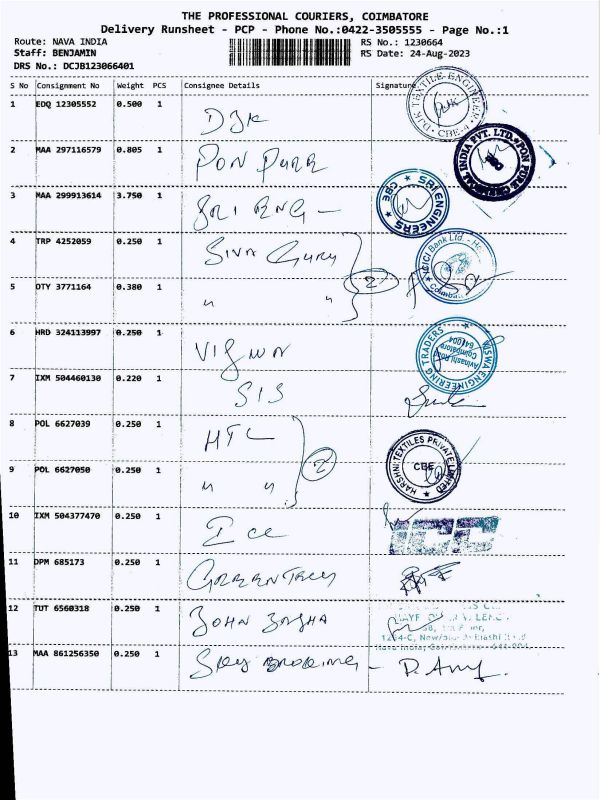 THE PROFESSIONAL COURIERS, COIMBATORE
Delivery Runsheet - PCP - Phone No.:0422-3505555 - Page No.:1
Route: NAVA INDIA RS No.: 1230664
Staff: BENJAMIN RS Date: 24-Aug-2023
DRS No.: DCJB123066401
S No Consignment No Weight PCS Consignee Details Signature
1 EDQ 12305552 0.500 1 DJK
DJK TEXTILE ENGINEER CBE-4
2 MAA 297116579 0.805 1 PON PURE
INDIA PVT. LTD. PON PURE CHEMICAL
3 MAA 299913614 3.750 1 SRI ENG -
SRI ENGINEERS CBE
4 TRP 4252059 0.250 1 SIVA GURU
ICICI Bank Ltd.
5 OTY 3771164 0.380 1 " " 2
6 HRD 324113997 0.250 1
VISWA ENGINEERING TRADERS
Avinashi Road
Coimbatore
641004
7 IXM 504460130 0.220 1 SIS
8 POL 6627039 0.250 1 HTL
HARSHNI TEXTILES PRIVATE LIMITED CBE
9 POL 6627050 0.250 1 " " 2
10 IXM 504377470 0.250 1 ICC
11 DPM 685173 0.250 1
12 TUT 6560318 0.250 1 JOHN
13 MAA 861256350 0.250 1